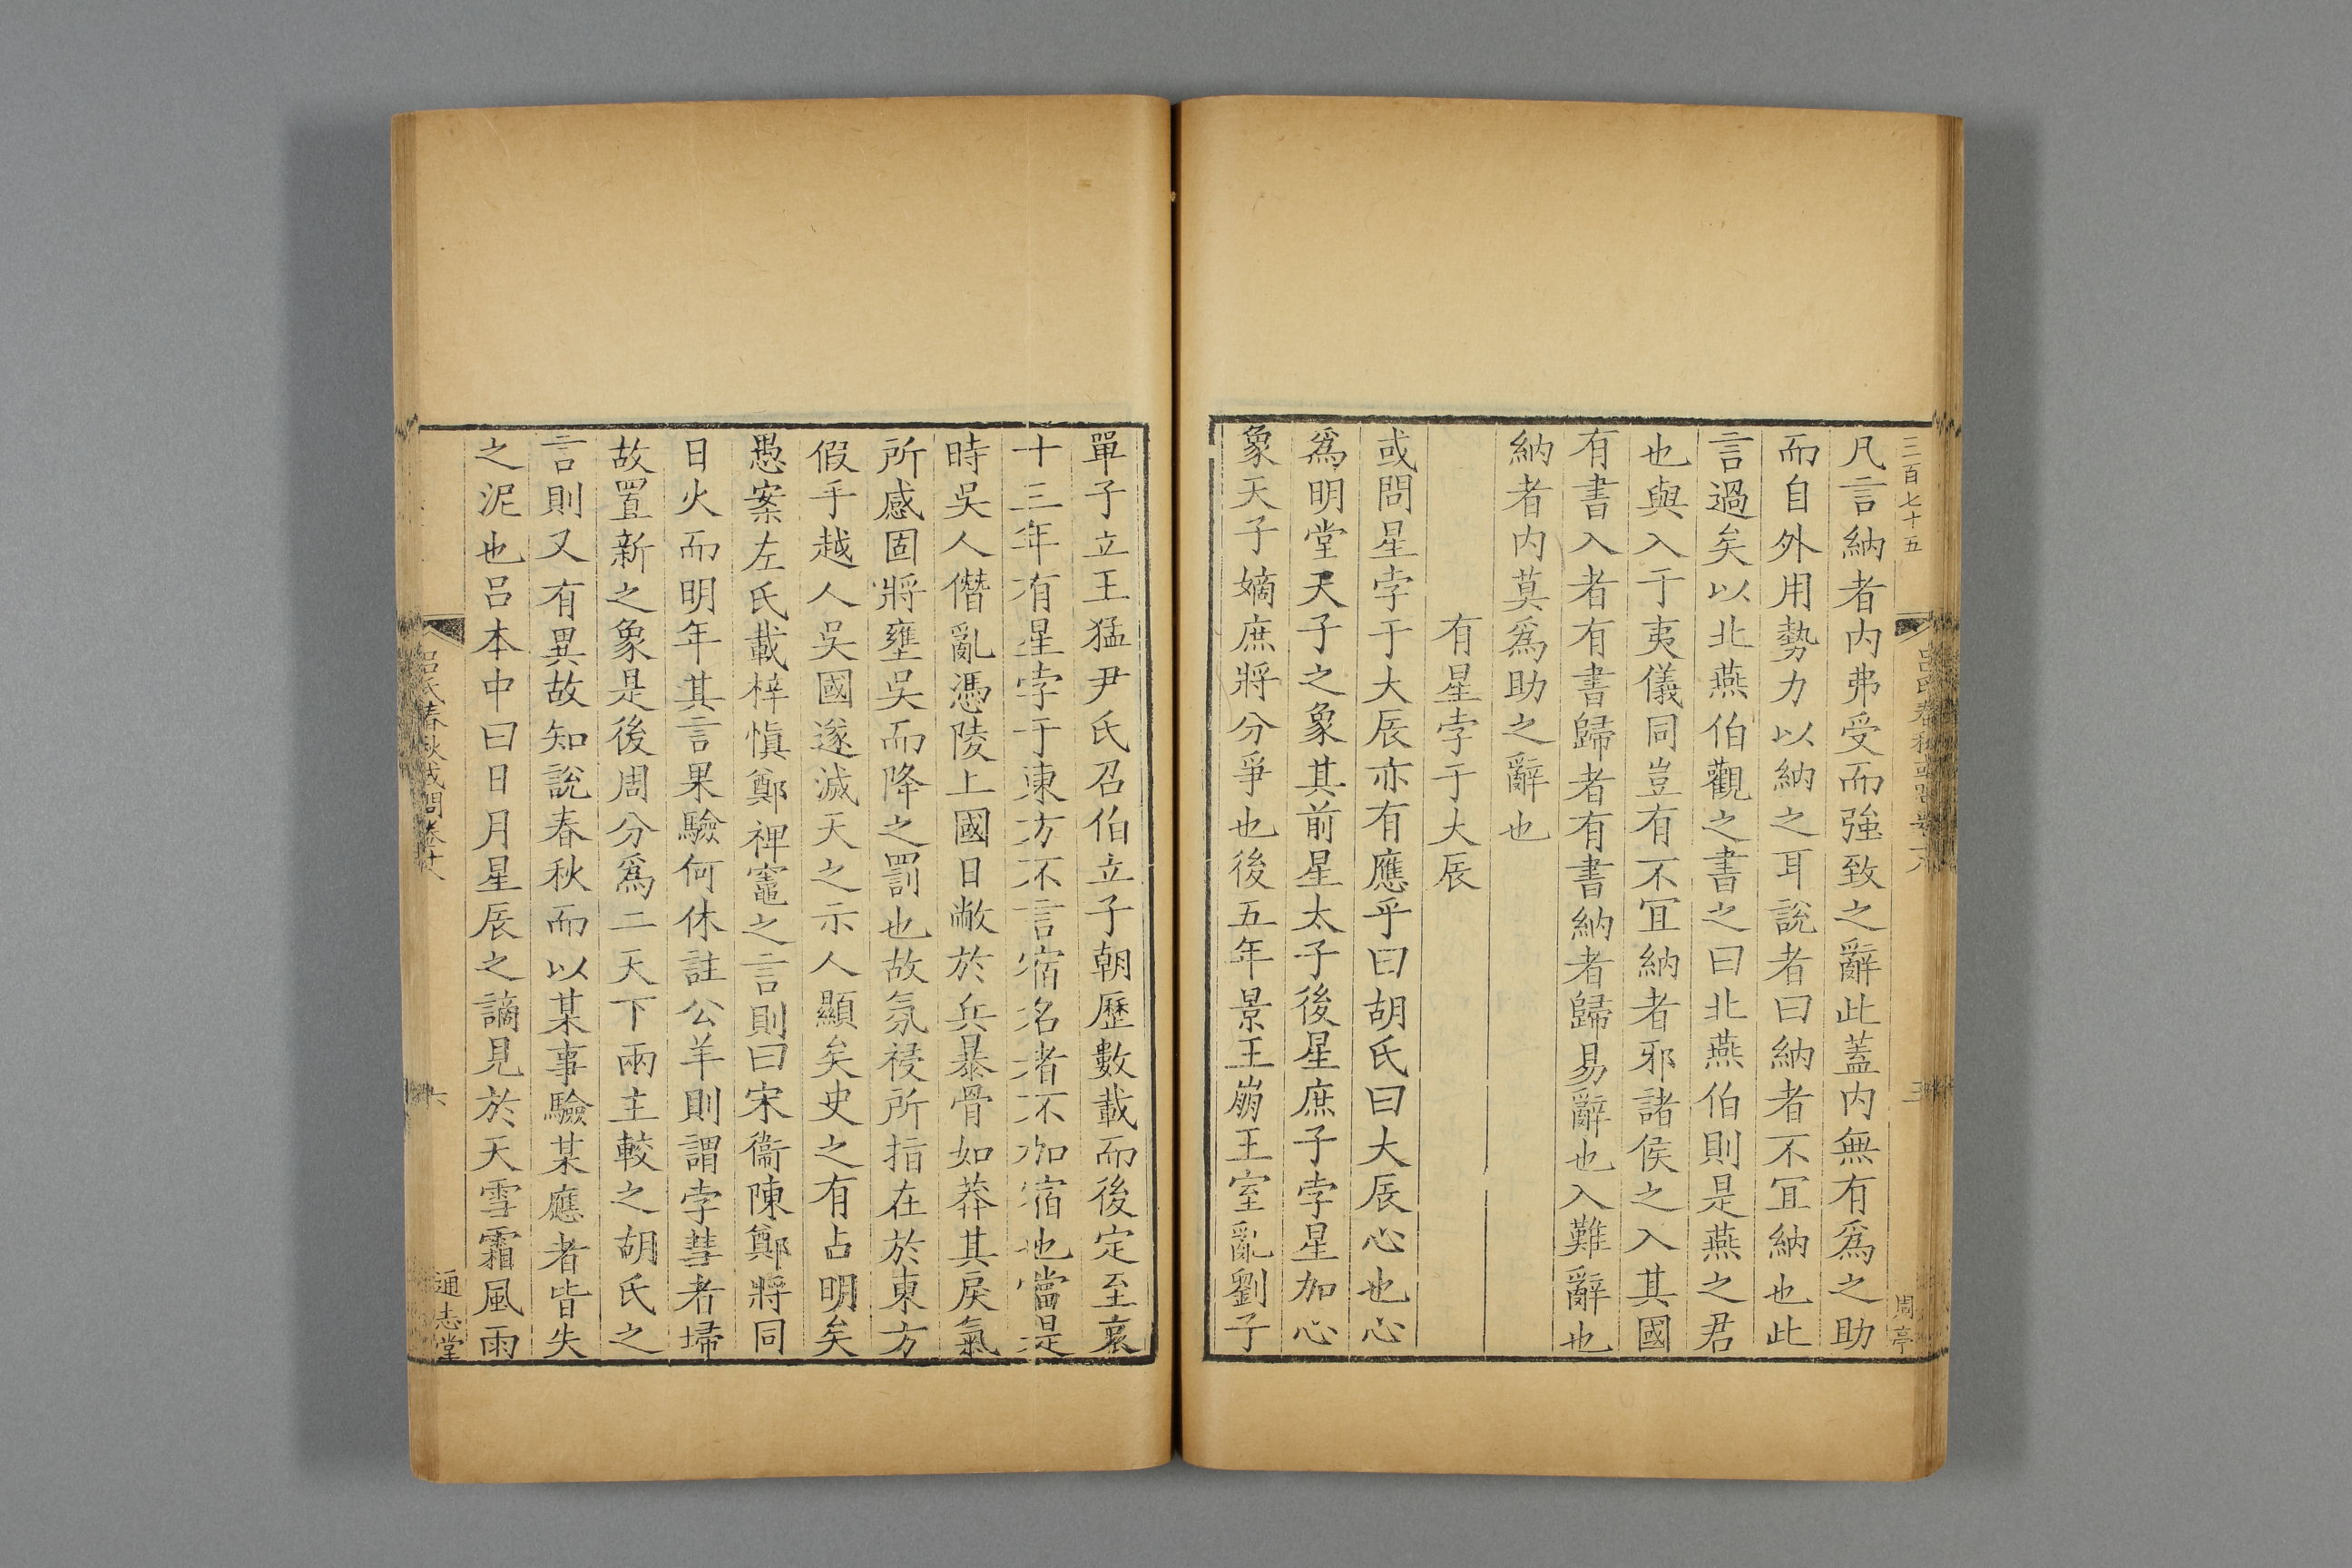 三百七十五
周亭
凡言納者内弗受而強致之辭此蓋内無有爲之助
而自外用勢力以納之耳說者曰納者不宜納也此
言過矣以北燕伯觀之書之曰北燕伯則是燕之君
也與入于夷儀同豈有不宜納者邪諸侯之入其國
有書入者有書歸者有書納者歸易辭也入難辭也
納者内莫爲助之辭也
有星孛于大辰
或問星孛于大辰亦有應乎曰胡氏曰大辰心也心
爲明堂天子之象其前星太子後星庶子孛星加心
象天子嫡庶將分爭也後五年景王崩王室亂劉子
單子立王猛尹氏召伯立子朝歷數載而後定至哀
十三年有星孛于東方不言宿名者不加宿也當是
時吳人僭亂憑陵上國日敝於兵暴骨如莽其戾氣
所感固將壅吳而降之罰也故氛祲所指在於東方
假手越人吳國遂滅天之示人顯矣史之有占明矣
愚案左氏載梓慎鄭裨竈之言則曰宋衞陳鄭將同
日火而明年其言果驗何休註公羊則謂孛彗者埽
故置新之象是後周分爲二天下兩主較之胡氏之
言則又有異故知說春秋而以某事驗某應者皆失
之泥也呂本中曰日月星辰之謫見於天雪霜風雨
呂氏春秋或問卷十八
六
通志堂